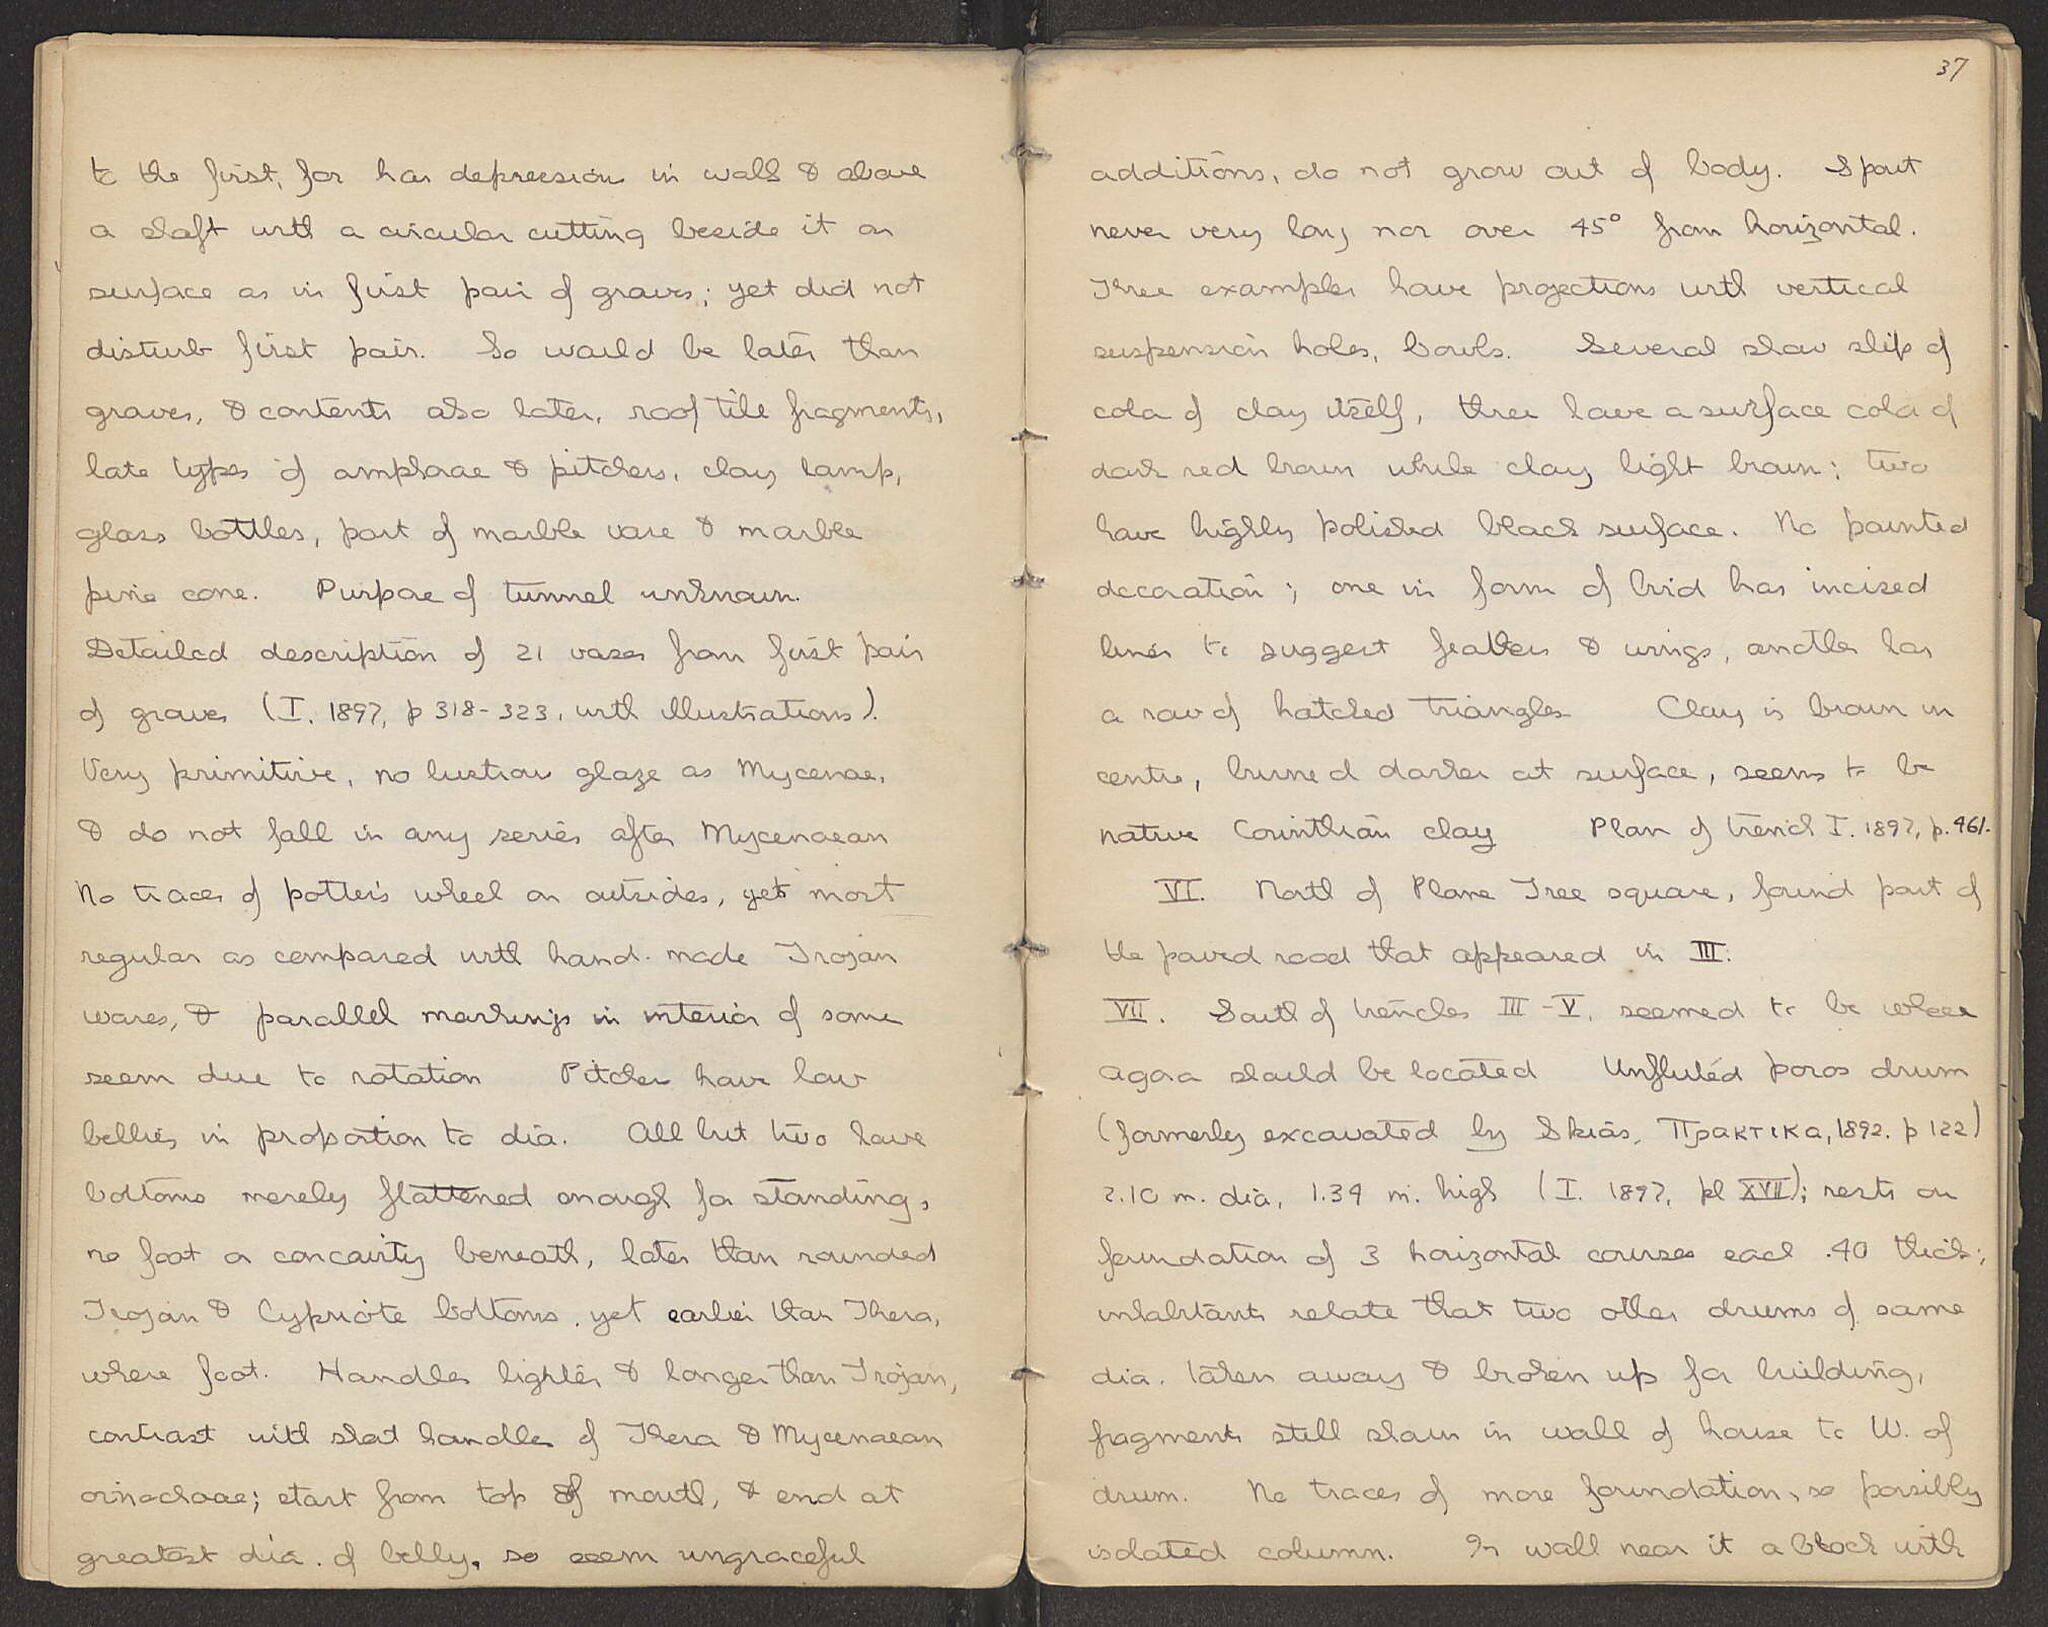 to the first, for has depression in wall & above
a shaft with a circular cutting beside it on
surface as in first pair of graves; yet did not
disturb first pair. So would be later than
graves, & contents also later, roof tile fragments,
late types of amphorae & pitchers, clay lamp,
glass bottles, part of marble vase & marble
pine cone. Purpose of tunnel unknown.
Detailed description of 21 vases from first pair
of graves (I. 1897, p 318-323, with illustrations).
Very primitive, no lustrous glaze as Mycenae,
& do not fall in any series after Mycenaean
No traces of potter's wheel on outsides, yet most
regular as compared with hand-made Trojan
wares, & parallel markings in interior of some
seem due to rotation Pitchers have low
bellies in proportion to dia. All but two have
bottoms merely flattened enough for standing,
no foot or concavity beneath, later than rounded
Trojan & Cypriote bottoms, yet earlier than Thera,
where foot. Handles lighter & longer than Trojan,
contrast with shat handles of Thera & Mycenaean
oinochoae; start from top of mouth, & end at
greatest dia. of belly, so seem ungraceful
37
additions, do not grow out of body. Spout
never very long nor over 45° from horizontal.
Three examples have projections with vertical
suspension holes, bowls. Several show slip of
color of clay itself, three have a surface color of
dark red brown while clay light brown; two
have highly polished black surface. No painted
decoration; one in form of bird has incised
lines to suggest feathers & wings, another has
a row of hatched triangles Clay is brown in
centre, burned darker at surface, seems to be
native Corinthian clay Plan of trench I. 1897, p. 461.
VI. North of Plane Tree square, found part of
the paved road that appeared in III.
VII. South of trenches III-V, seemed to be where
agora should be located Unfluted poros drum
(formerly excavated by Skias, Πρακτικα, 1892. p 122)
2.10 m. dia, 1.34 m. high (I. 1897, pl XVII); rests on
foundation of 3 horizontal courses each .40 thick;
inhabitants relate that two other drums of same
dia. taken away & broken up for building,
fragments still shown in wall of house to W. of
drum. No traces of more foundation, so possibly
isolated column. In wall near it a block with